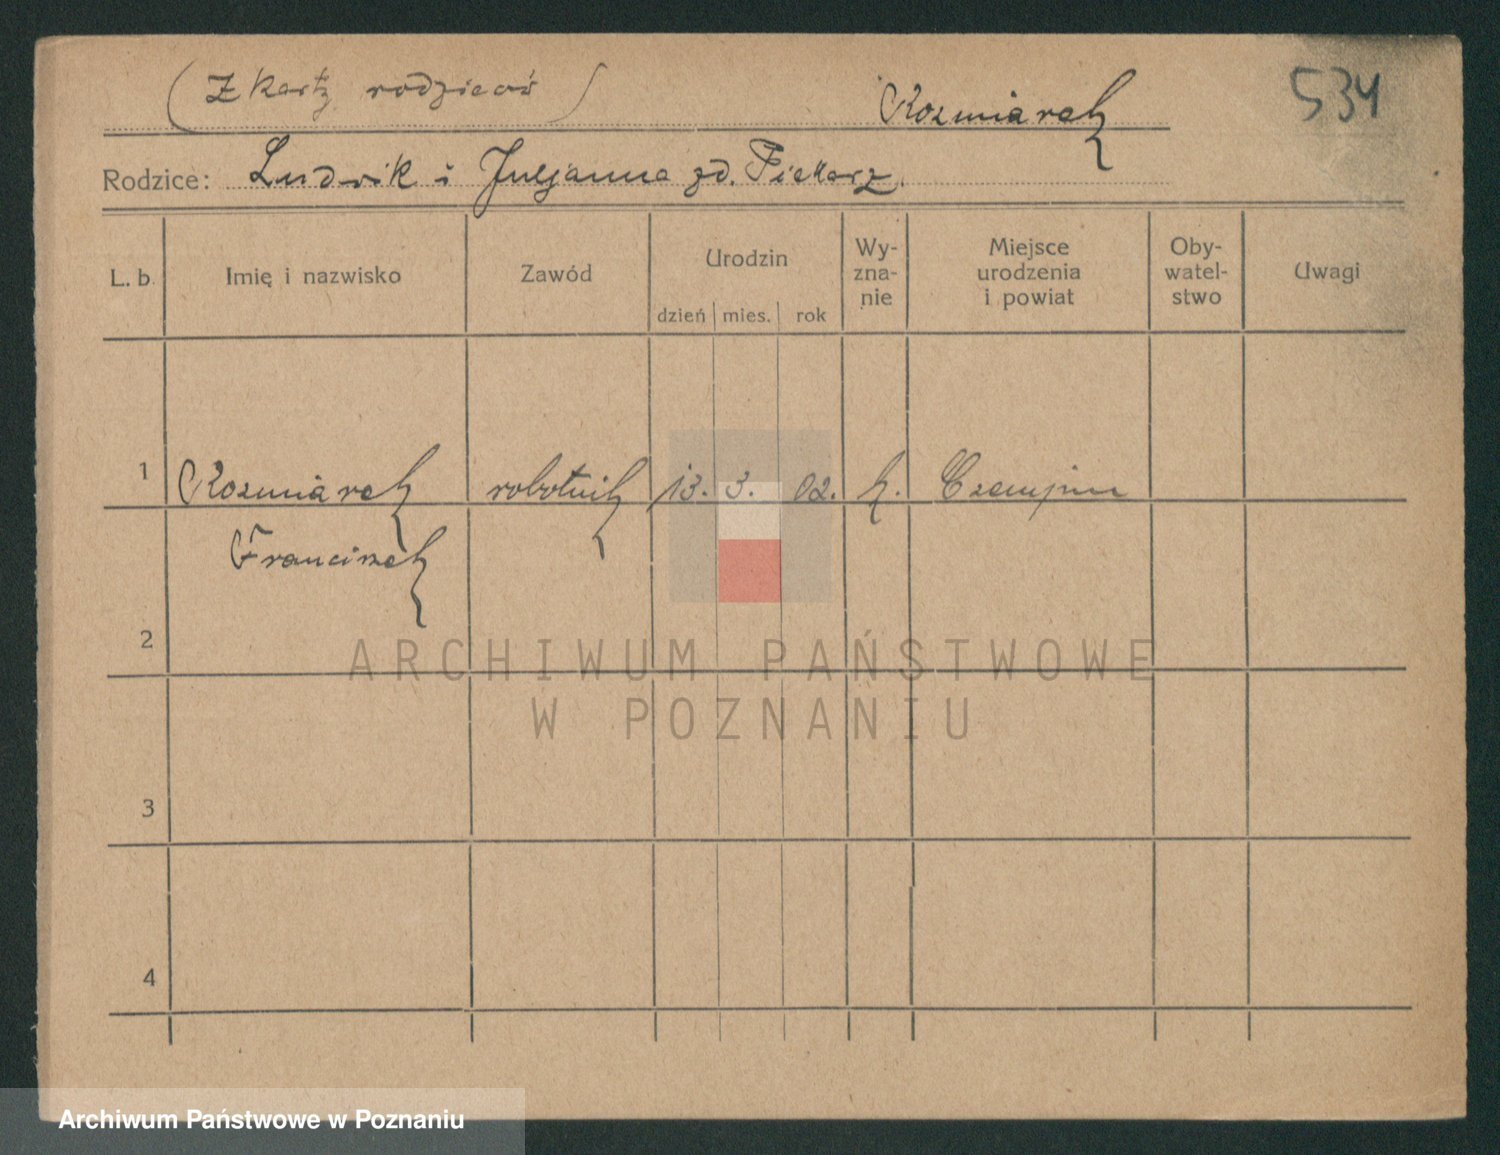 (Z karty rodziców)
Rozmiarek
534
Rodzice: Ludwik i Juljanna zd. Piekarz.
L. b. Imię i nazwisko Zawód Urodzin dzień mies. rok Wy-zna-nie Miejsce urodzenia i powiat Oby-watel-stwo Uwagi
1 Rozmiarek robotnik 13. 3. 02. k. Czempiń
Franciszek
2
3
4
ARCHIWUM PAŃSTWOWE
W POZNANIU
Archiwum Państwowe w Poznaniu